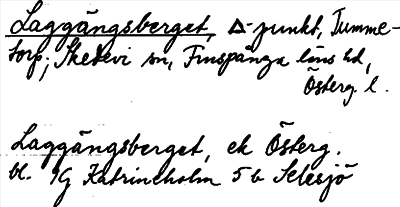 Laggängsberget, Δ-punkt, Tumme-
torp, Skedevi sn, Finspånga läns hd,
Österg. l.
Laggängsberget, ek Österg.
bl. 9G Katrineholm 5b Selesjö